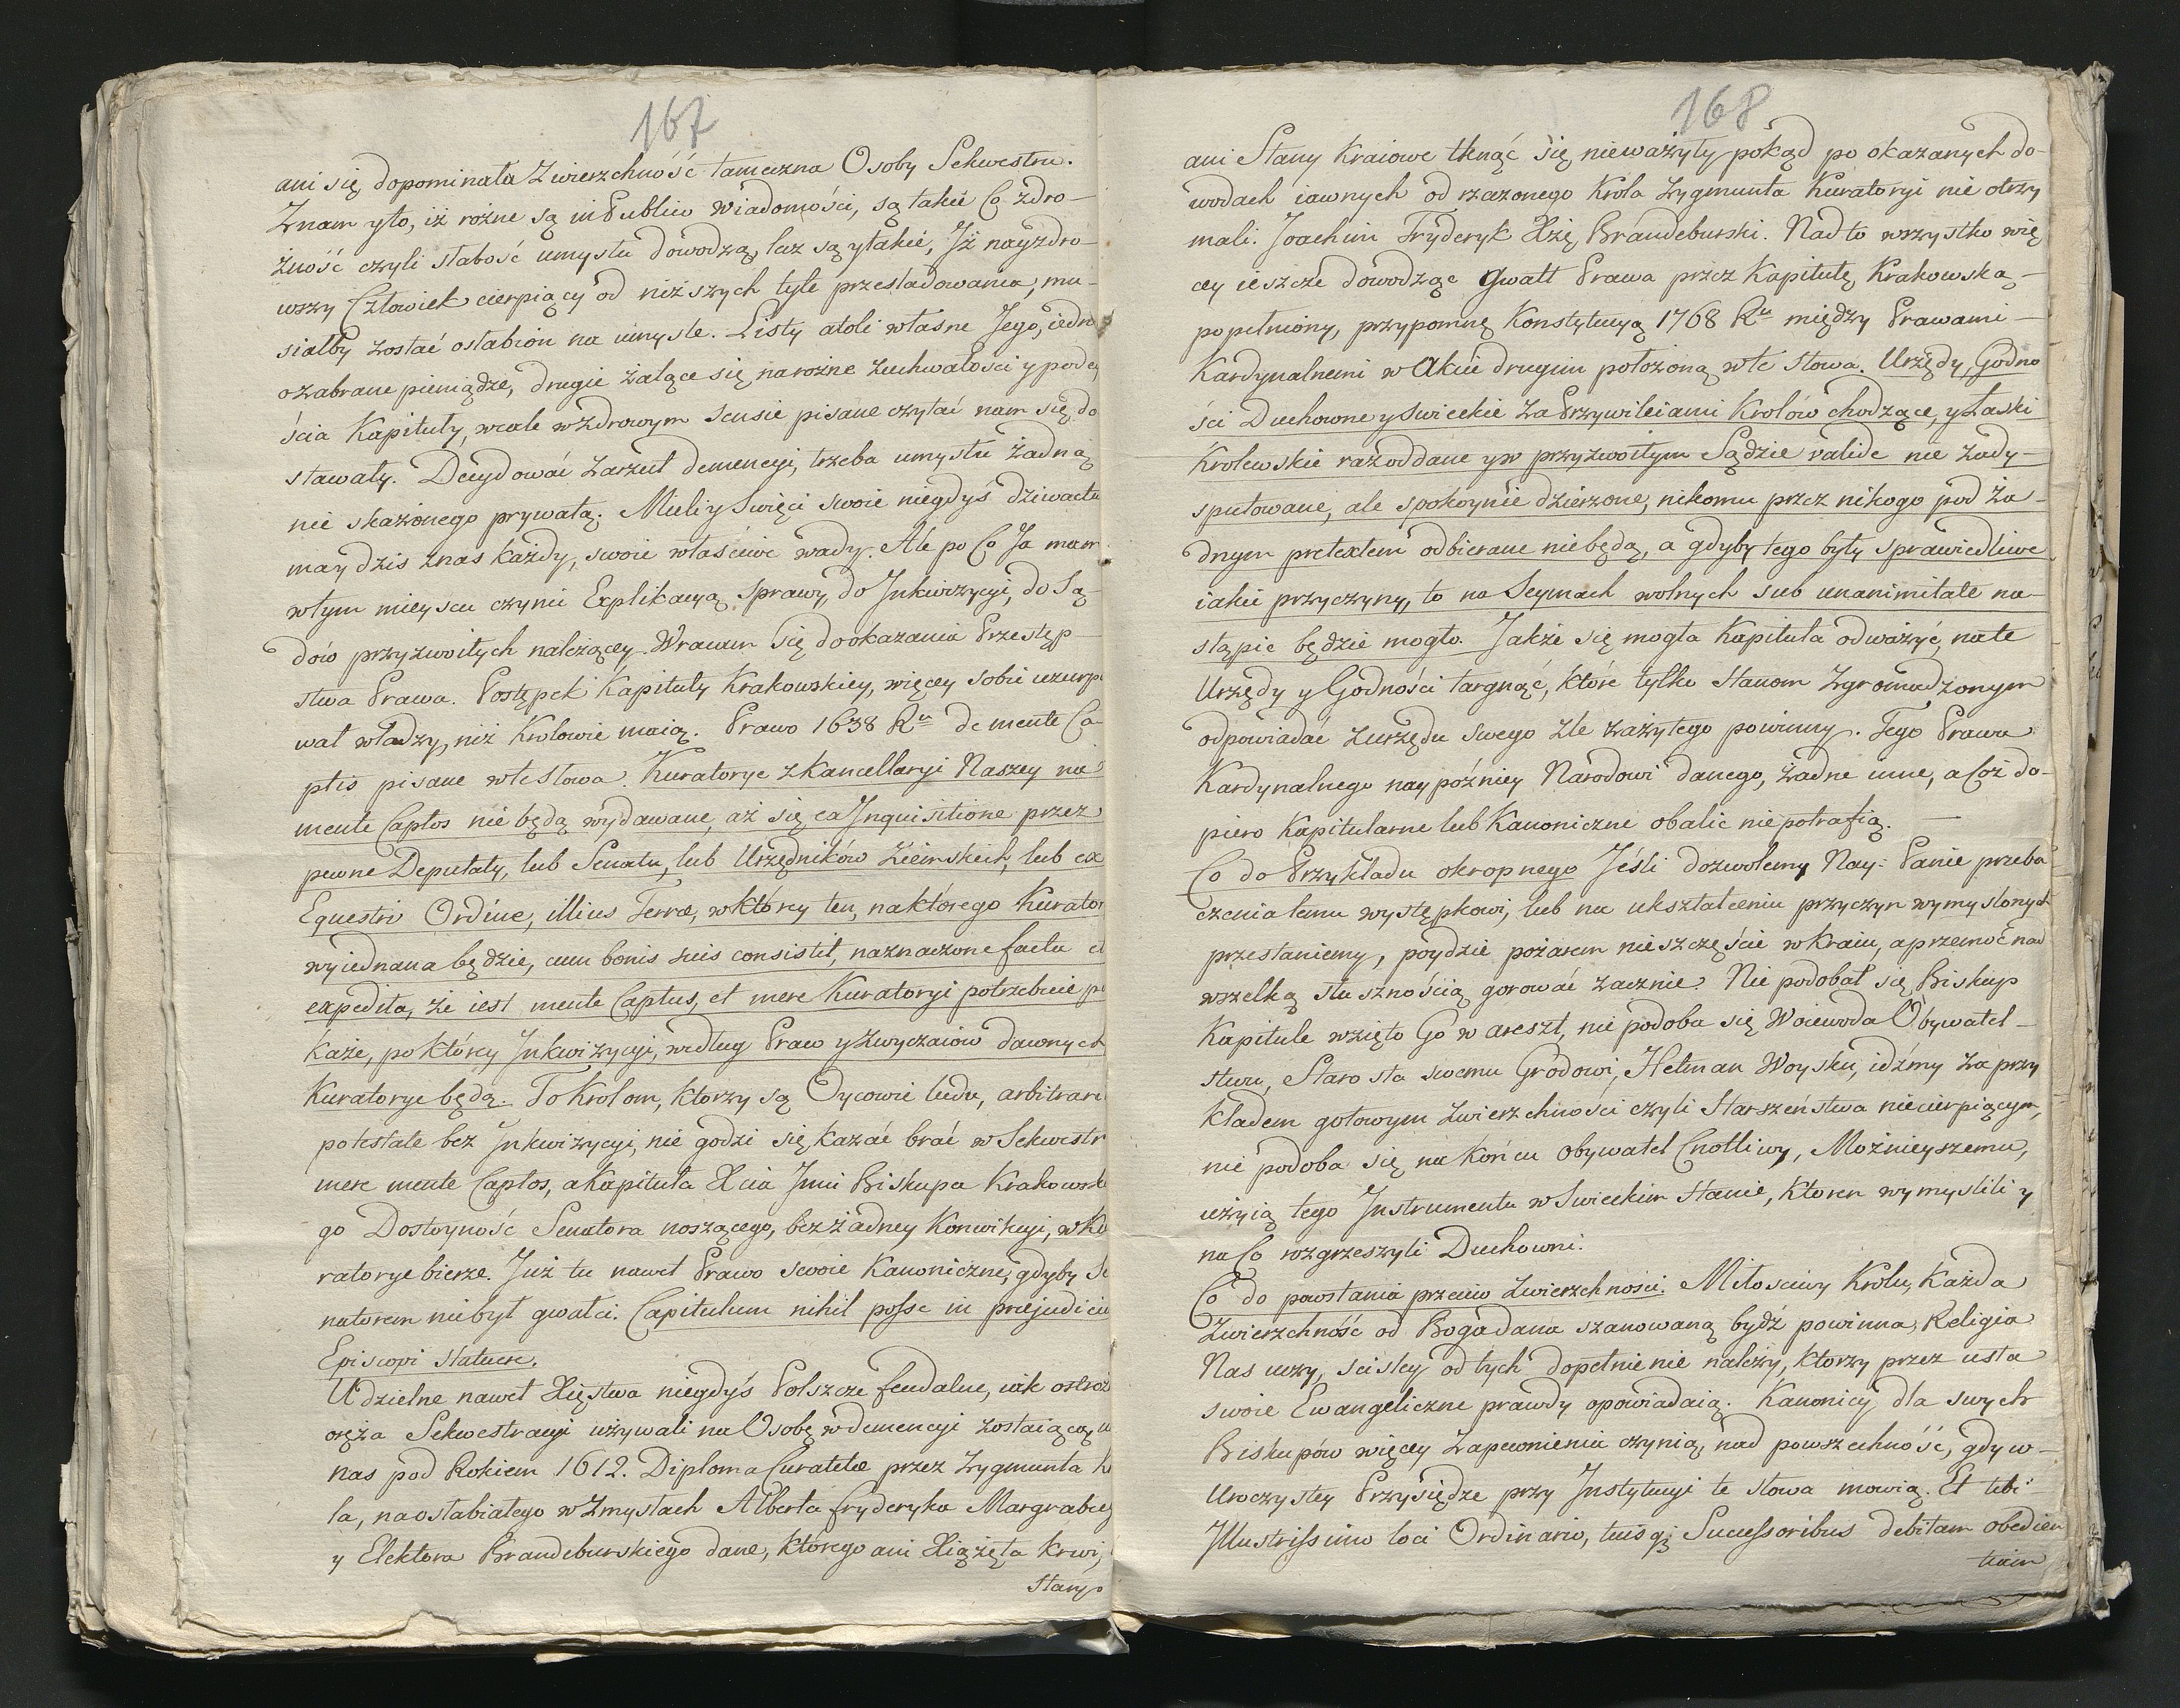 167
ani się dopominała Zwierzchność tameczna Osoby Sekwestru.
Znam y to, iż rożne są in Publico wiadomości, są takie Co zdro-
żność czyli słabość umysłu dowodzą, lecz są y takie, Jż nayzdro-
wszy Człowiek cierpiący od niższych tyle prześladowania, mu-
siałby zostać osłabion na umyśle. Listy atoli własne Jego, iedne
o zabrane pieniądze, drugie żalące się na rożne zuchwałości y podey
ścia Kapituły, wcale w zdrowym sensie pisane czytać nam się do
stawały. Decydować zarzut demencyi, trzeba umysłu żadną
nie skażonego prywatą. Mieli y Swięci swoie niegdyś dziwactwa
ma y dzis z nas każdy, swoie właściwe wady. Ale po Co Ja mam
w tym mieyscu czynić Explikacyą sprawy, do Jnkwizycyi, do Są-
dów przyzwoitych należącey. Wracam się do okazania Przestęp-
stwa Prawa. Postępek Kapituły Krakowskiey, więcey sobie uzurpo
wał władzy, niż Krolowie maią. Prawo 1638 Ru de mente Ca-
ptis pisane w te słowa. Kuratorye z Kancellaryi Naszey na
mente Captos nie będą wydawane, aż się ea Jnquisitione przez
pewne Deputaty, lub Senatu, lub Urzędników Ziemskich, lub ex
Equestri Ordine, illius Terræ, w ktorey ten, na którego Kurator
wyiednana będzie, cum bonis suis consistit, naznaczone facta et
expedita, że iest mente Captus, et mere Kuratoryi potrzebuie po
każe, po którey Jnkwizycyi, według Praw y Zwyczaiów dawnych
Kuratorye będą. To Krolom, ktorzy są Oycowie ludu, arbitrare
potestate bez Jnkwizycyi, nie godzi się kazać brać w Sekwestr
mere mente Captos, a Kapituła Xcia Jmci Biskupa Krakowskie
go Dostoyność Senatora noszącego, bez żadney Konwikcyi, w Ku
ratorye bierze. Już tu nawet Prawo swoie Kanoniczne, gdyby Se
natorem nie był gwałci. Capitulum nihil posse in præjudicium
Episcopi statuere.
Udzielne nawet Xięstwa niegdyś Polszcze feudalne, iak ostroż
oręża Sekwestracyi używali na Osobę w demencyi zostaiącey, u
nas pod Rokiem 1612. Diploma Curatelæ przez Zygmunta K
la, na osłabiałego w Zmysłach Alberta Fryderyka Margrabię
y Elektora Brandeburskiego dane, którego ani Xiążęta krwi,
Stany
168
ani Stany Kraiowe tknąć się nieważyły pokąd po okazanych do-
wodach iawnych od rzeczonego Krola Zygmunta Kuratoryi nie otrzy
mali. Joachim Fryderyk Xżę Brandeburski. Nad to wszystko wię
cey ieszcze dowodząc gwałt Prawa przez Kapitułę Krakowską-
popełniony, przypomnę Konstytucyą 1768 Ru między Prawami-
Kardynalnemi w Akcie drugim położoną w te słowa. Urzędy, Godno
ści Duchowne y Swieckie za Przywileiami Krolów chodzące, y Łaski
Krolewskie raz oddane y w przyzwoitym Sądzie valide nie zady-
sputowane, ale spokoynie dzierżone, nikomu przez nikogo pod ża-
dnym pretextem odbierane nie będą, a gdyby tego były sprawiedliwe
iakie przyczyny, to na Seymach wolnych sub unanimitate na-
stąpić będzie mogło. Jakże się mogła Kapituła odważyć, na te
Urzędy y Godności targnąć, które tylko Stanom Zgromadzonym
odpowiadać z urzędu swego źle zażytego powinny. Tego Prawa
Kardynalnego naypóźniey Narodowi danego, żadne inne, a Coż do-
piero Kapitularne lub Kanoniczne obalić nie potrafią.
Co do Przykładu okropnego Jeśli dozwolemy Nay: Panie przeba
czenia temu występkowi, lub na ukształceniu przyczyn wymyślonych
przestaniemy, poydzie pożarem nieszczęście w kraiu, a przemoc nad
wszelką słusznością gorować zacznie. Nie podobał się Biskup
Kapitule wzięto Go w areszt, nie podoba się Woiewoda Obywatel-
stwu, Starosta swemu Grodowi, Hetman Woysku, idźmy za przy
kładem gotowym zwierzchności czyli Starszeństwa niecierpiącym,
nie podoba się na końcu obywatel Cnotliwy, Możnieyszemu,
użyią tego Jnstrumentu w Swieckim Stanie, ktoren wymyślili y
na Co rozgrzeszyli Duchowni.
Co do powstania przeciw Zwierzchności. Miłościwy Krolu, Każda
Zwierzchność od Boga dana szanowaną bydź powinna, Religia
Nas uczy, sciśley od tych dopełnienie należy, ktorzy przez usta
swoie Ewangeliczne prawdy opowiadaią. Kanonicy dla swych
Biskupów więcey zapewnienia czynią, nad powszechność, gdy w-
Uroczystey Przysiędze przy Jnstytucyi te słowa mowią. Et tibi
Jllustrissimo loci Ordinario, tuisq; Successoribus debitam obedien
tiam